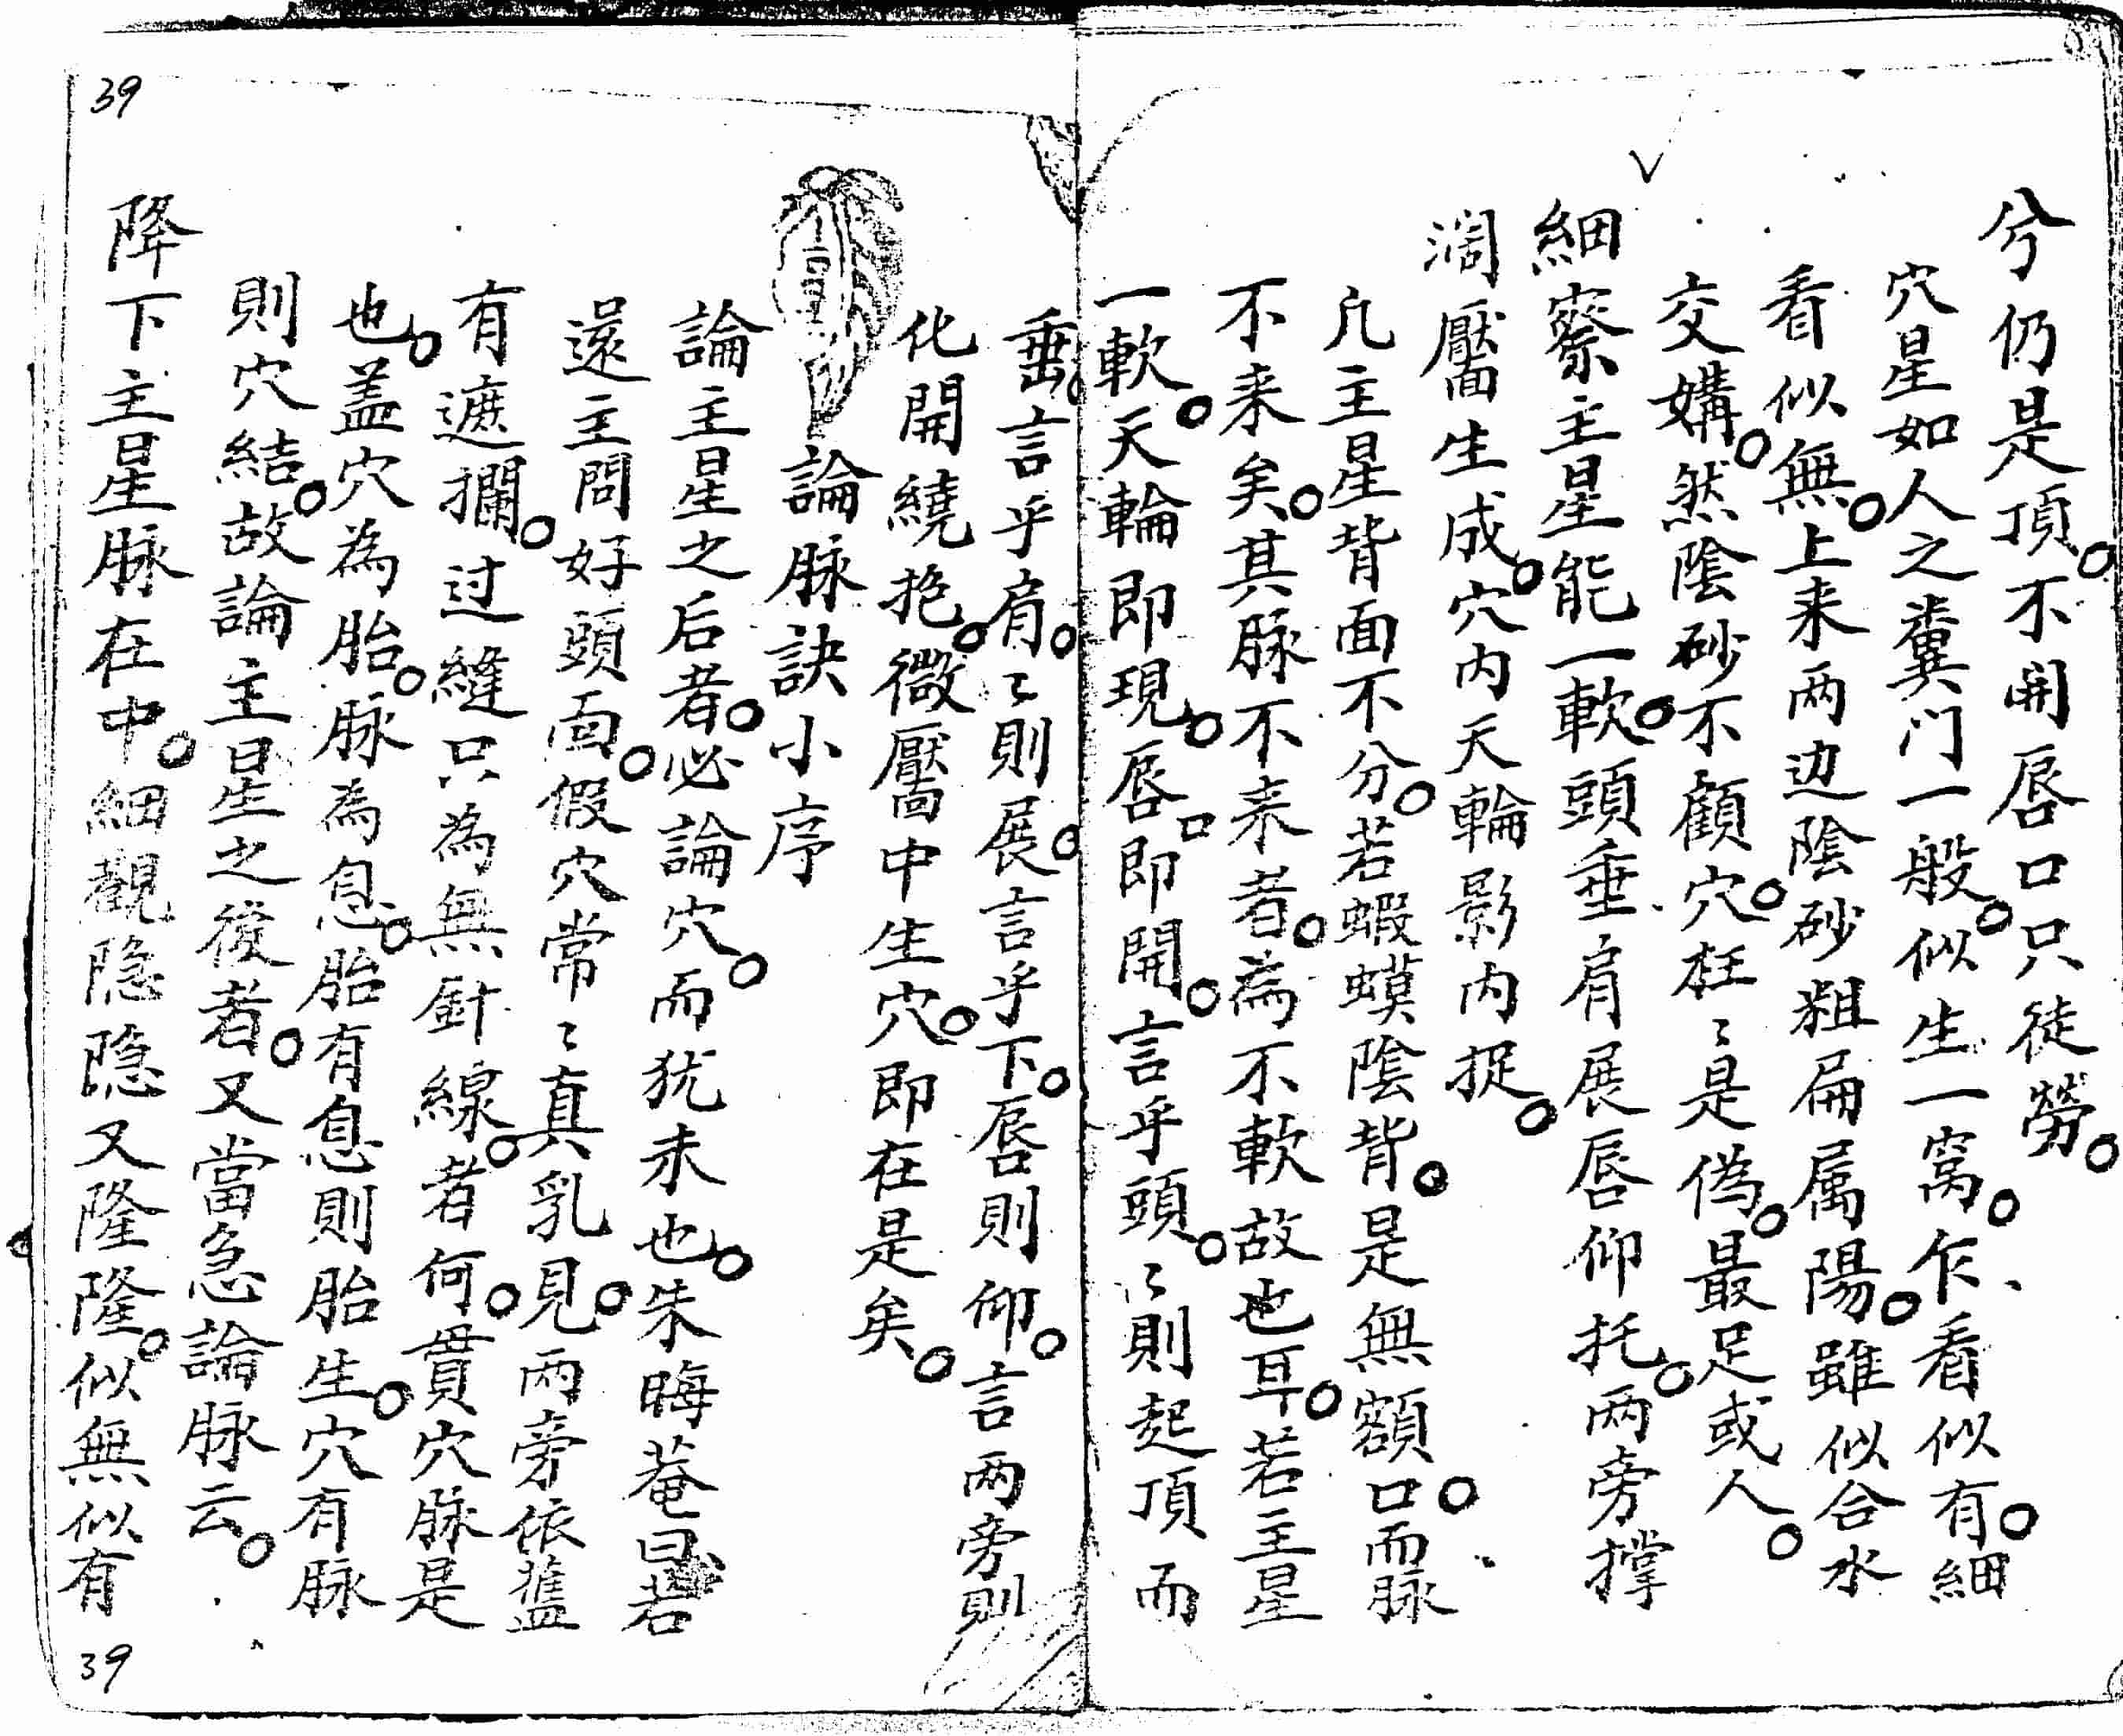 兮仍是頂。不開唇口只徒勞。
穴星如人之糞门一般。似生一窩。乍看似有。細
看似無。上来两边陰砂粗扁属陽。雖似合水
交媾。然陰砂不顧穴。枉〻是偽。最足或人。
細察主星能一軟。頭垂肩展唇仰托。两旁撑
濶靨生成。穴内天輪影内捉。
凡主星背面不分。若蝦蟆陰背。是無額口。而脉
不来矣。其脉不来者。為不軟故也耳。若主星
一軟。天輪即現。唇口即開。言乎頭。〻則起頂而
垂。言乎肩。〻則展。言乎下。唇則仰。言两旁則
化開繞抱。微靨中生穴。即在是矣。
論脉訣小序
論主星之后者。必論穴。而犹未也。朱晦菴曰若
還主問好頭面。假穴常〻真乳見。两旁依舊
有遮攔。过縫只為無針線。者何。貫穴脉是
也。盖穴為胎。脉為息。胎有息則胎生。穴有脉
則穴結。故論主星之後者。又當急論脉云。
降下主星脉在中。細觀隐隐又隆隆。似無似有
39
39